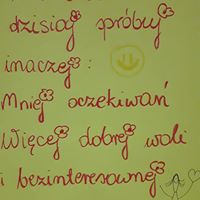 dzisiaj próbuj
inaczej:
Mniej oczekiwań
Więcej dobrej woli
i bezinteresownej